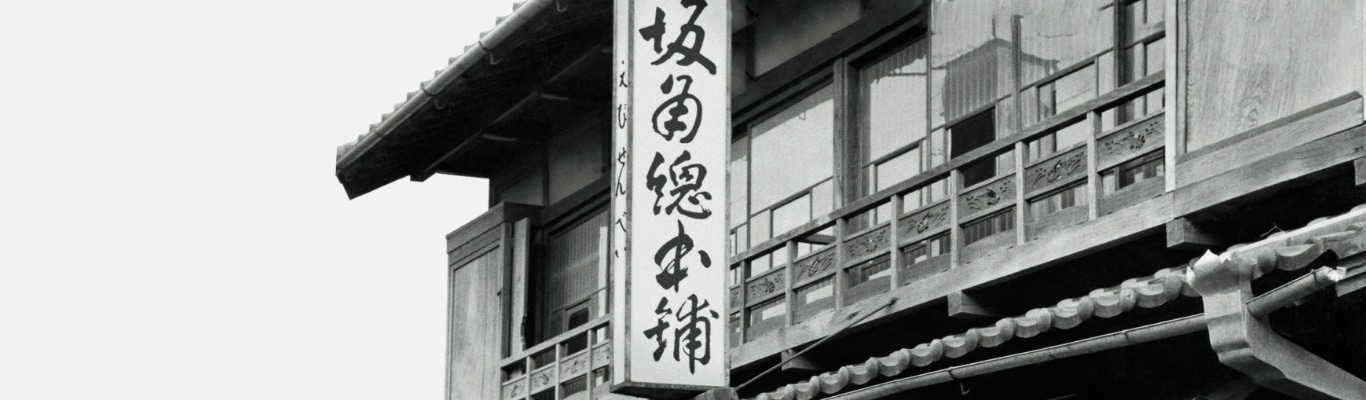 坂角總本舖
えびせんべい